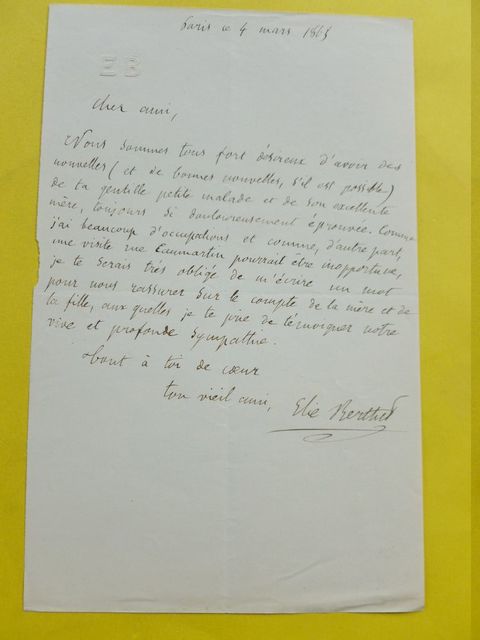 Paris ce 4 mars 1865
EB
Cher ami,
Nous sommes tous fort désireux d'avoir des
nouvelles (et de bonnes nouvelles, s'il est possible)
de ta gentille petite malade et de son excellente
mère, toujours si douloureusement éprouvée. Comme
j'ai beaucoup d'occupations et comme, d'autre part,
une visite rue Caumartin pourrait être inopportune,
je te serais très obligé de m'écrire un mot
pour nous rassurer sur le compte de la mère et de
la fille, aux quelles je te prie de témoigner notre
vive et profonde sympathie.
tout à toi de cœur
ton vieil ami,
Elie Berthet